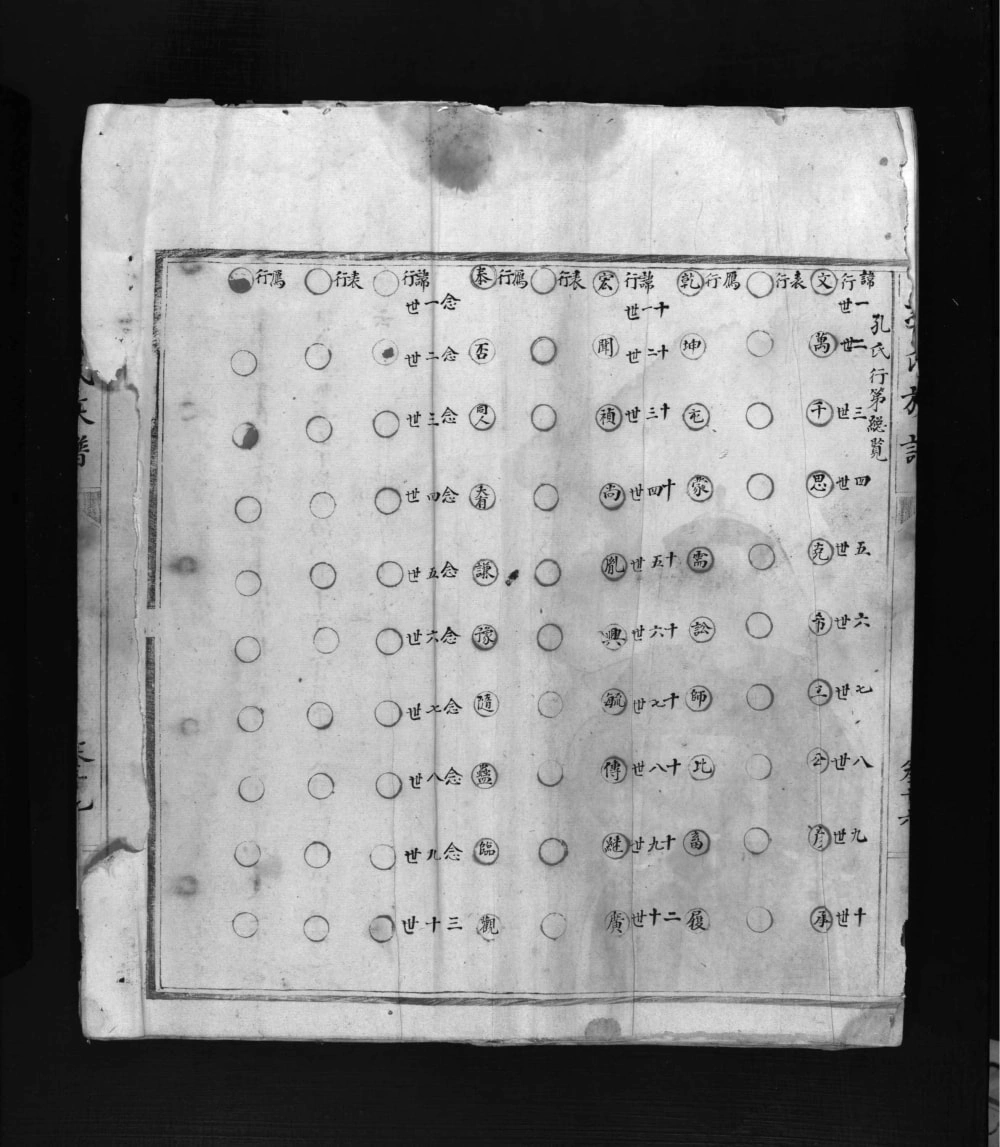 孔氏行第總覧
諱行 一世 二世 三世 四世 五世 六世 七世 八世 九世 十世
文 萬 千 思 克 希 公 彥 承
表行
鴈行
乾 坤 屯 蒙 需 訟 師 比 畜 履
諱行 十一世 十二世 十三世 十四世 十五世 十六世 十七世 十八世 十九世 二十世
宏 聞 禎 尚 胤 興 毓 傳 継 廣
表行
鴈行
泰 否 同人 大有 謙 豫 隨 蠱 臨 觀
諱行 念一世 念二世 念三世 念四世 念五世 念六世 念七世 念八世 念九世 三十世
表行
鴈行